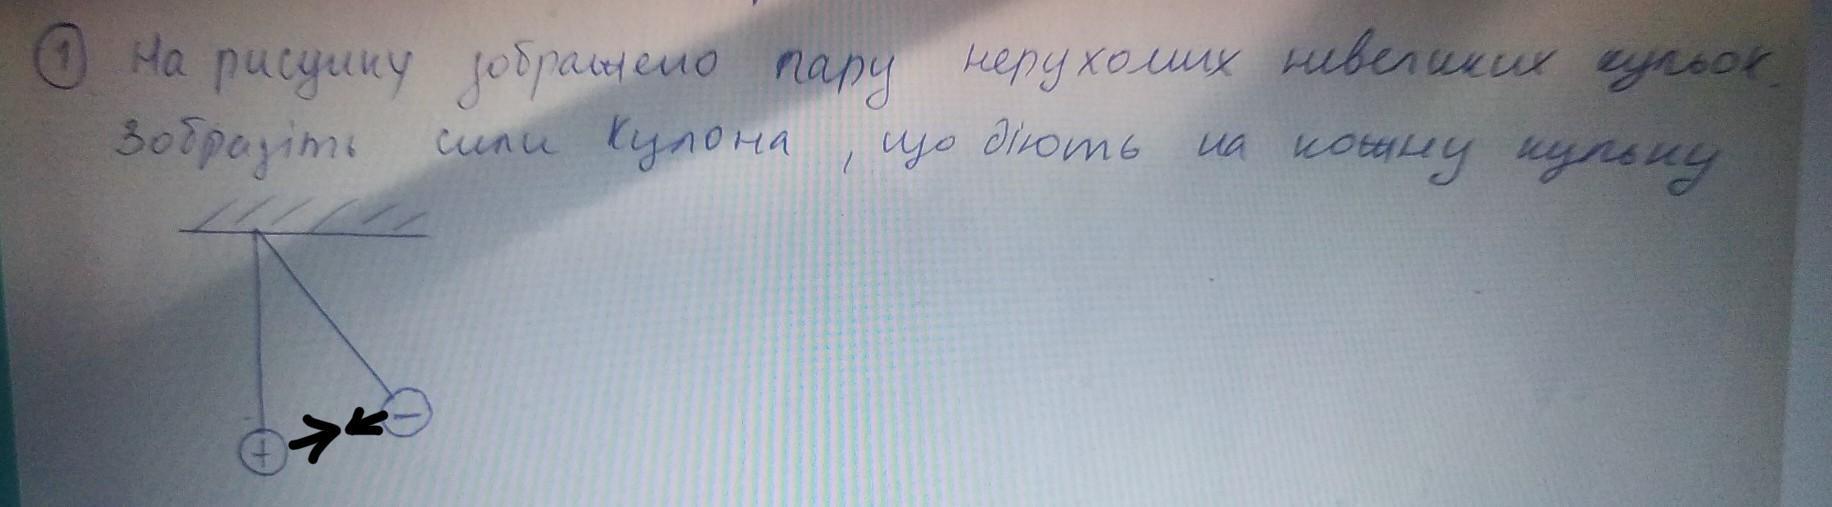 1 На рисунку зображено пару нерухомих невеликих кульок.
Зобразіть сили Кулона, що діють на кожну кульку
+ −